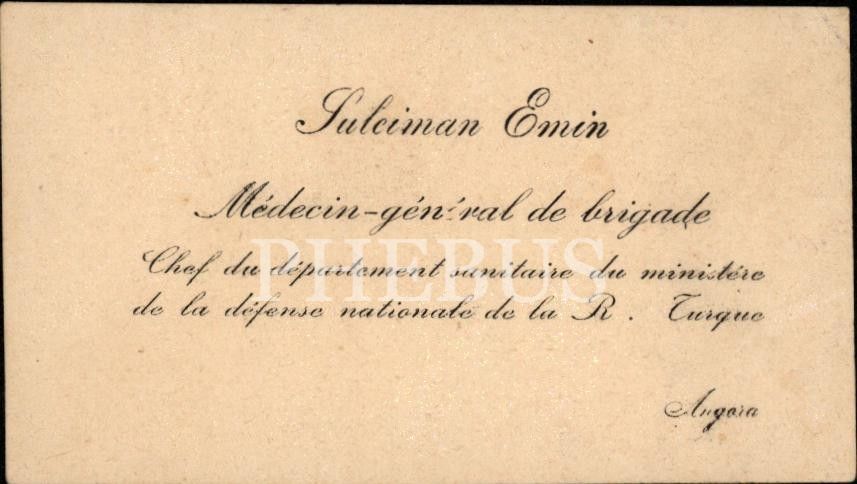 Suleiman Emin
Médecin-général de brigade
Chef du département sanitaire du ministére
de la défense nationale de la R. Turque
Angora
PHEBUS